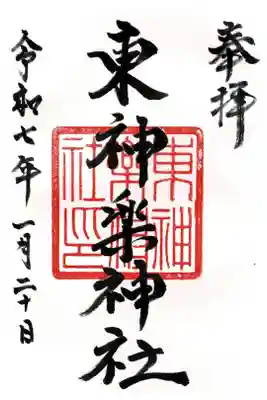 奉拝
東神楽神社
東神楽神社印
令和七年一月二十日